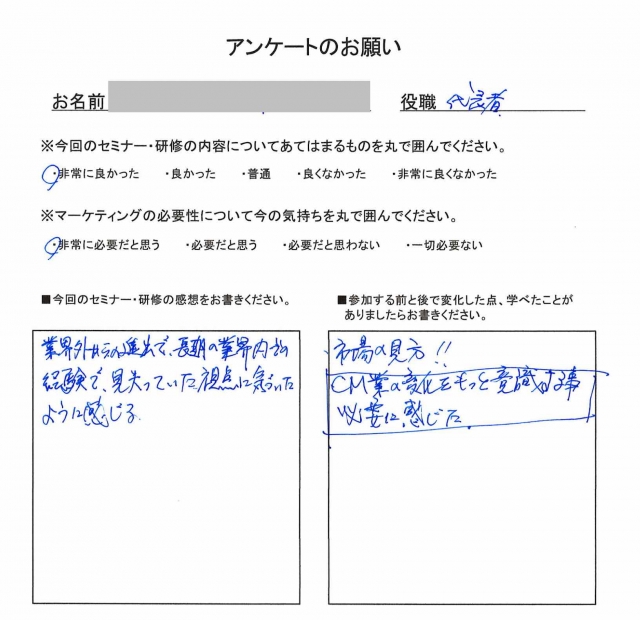 アンケートのお願い
お名前
役職 代表者
※今回のセミナー・研修の内容についてあてはまるものを丸で囲んでください。
・非常に良かった ・良かった ・普通 ・良くなかった ・非常に良くなかった
※マーケティングの必要性について今の気持ちを丸で囲んでください。
・非常に必要だと思う ・必要だと思う ・必要だと思わない ・一切必要ない
■今回のセミナー・研修の感想をお書きください。
業界外からの進出で、長期の業界内での
経験で、見失っていた視点に気づいた
ように感じる
■参加する前と後で変化した点、学べたことが
ありましたらお書きください。
市場の見方!!
CM業の変化をもっと意識する事
必要に感じた。